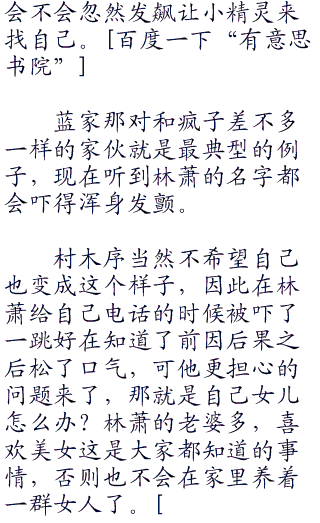 会不会忽然发飙让小精灵来
找自己。[百度一下“有意思
书院”]
蓝家那对和疯子差不多
一样的家伙就是最典型的例
子，现在听到林萧的名字都
会吓得浑身发颤。
村木序当然不希望自己
也变成这个样子，因此在林
萧给自己电话的时候被吓了
一跳好在知道了前因后果之
后松了口气，可他更担心的
问题来了，那就是自己女儿
怎么办？林萧的老婆多，喜
欢美女这是大家都知道的事
情，否则也不会在家里养着
一群女人了。[